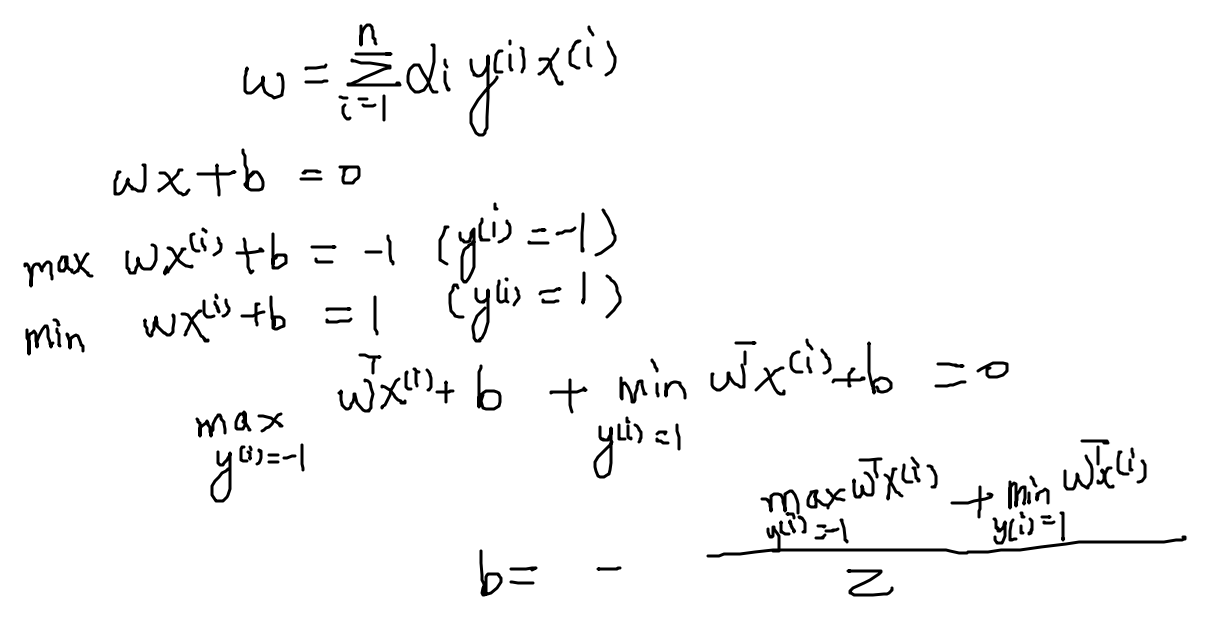 w = \sum_{i=1}^{n} \alpha_i y^{(i)} x^{(i)}
wx + b = 0
max wx^{(i)} + b = -1 (y^{(i)} = -1)
min wx^{(i)} + b = 1 (y^{(i)} = 1)
\max_{y^{(i)}=-1} w^T x^{(i)} + b + \min_{y^{(i)}=1} w^T x^{(i)} + b = 0
b = - \frac{\max_{y^{(i)}=-1} w^T x^{(i)} + \min_{y^{(i)}=1} w^T x^{(i)}}{2}